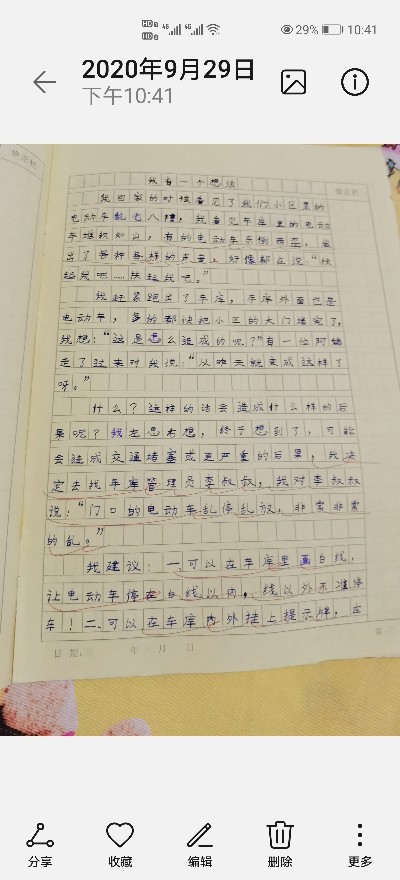 29% 10:41
2020年9月29日
下午10:41
我有一个想法
我回家的时候看见了我们小区里的
电动车乱七八糟,我看见车库里的电动
车堆积如山,有的电动车东倒西歪,发
出了各种各样的声音,好像都在说:“扶
起我吧……扶起我吧。”
我赶紧跑出了车库,车库外面也是
电动车,多的都快把小区的大门堵完了,
我想:“这是怎么造成的呢?”有一位阿姨
走了过来对我说:“从昨天就变成这样了
呀。”
什么?这样的话会造成什么样的后
果呢?我左思右想,终于想到了,可能
会造成交通堵塞或更严重的后果,我决
定去找车库管理员李叔叔,我对李叔叔
说:“门口的电动车乱停乱放,非常非常
的乱。”
我建议:一、可以在车库里画白线,
让电动车停在白线以内,线以外不准停
车!二、可以在车库内外挂上提示牌,在
日期: 年 月 日
分享 收藏 编辑 删除 更多